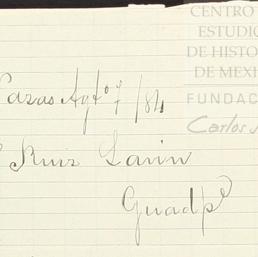 CENTRO
ESTUDIO
DE HISTO
DE MEXI
FUNDAC
Carlos
Parras Agto 7/84
Ruiz Lavin
Guadpe